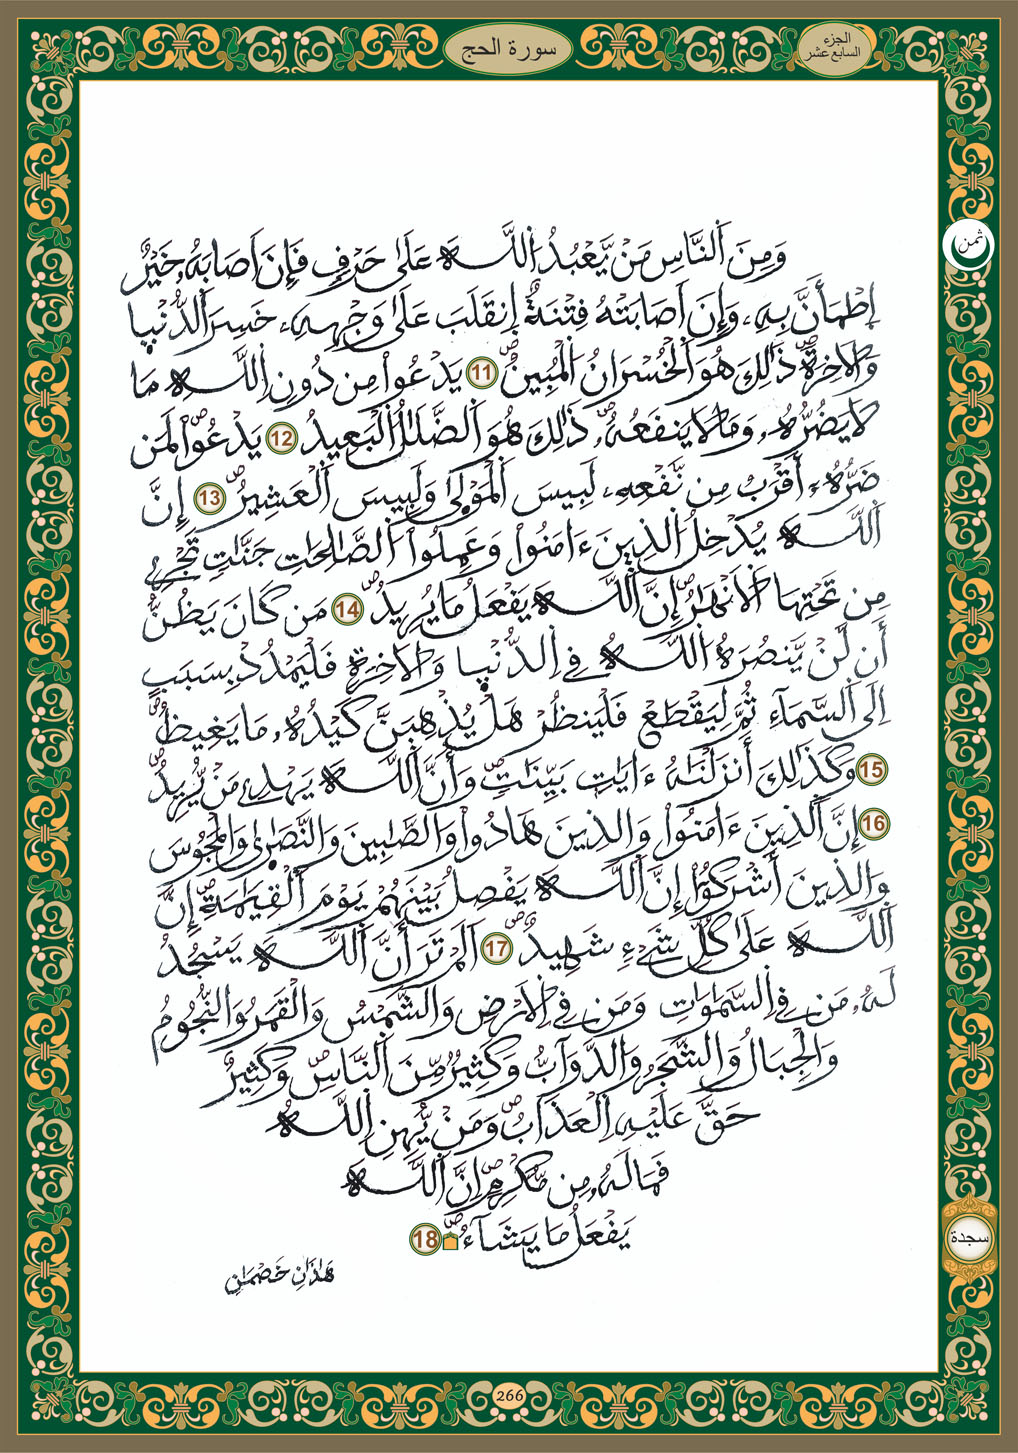 سورة الحج
الجزء
السابع عشر
ثمن
وَمِنَ اَ۬لنَّاسِ مَنْ يَّعْبُدُ اُ۬للَّهَ عَلَىٰ حَرْفٖ فَإِنَ اَصَابَهُۥ خَيْرٌ
اِ۪طْمَأَنَّ بِهِۦ وَإِنَ اَصَابَتْهُ فِتْنَةٌ اِ۪نقَلَبَ عَلَىٰ وَجْهِهِۦ خَسِرَ اَ۬لدُّنْي۪ا
وَالَاخِرَةَۖ ذَٰلِكَ هُوَ اَ۬لْخُسْرَانُ اُ۬لْمُبِينُۖ 11 يَدْعُواْ مِن دُونِ اِ۬للَّهِ مَا
لَا يَضُرُّهُۥ وَمَا لَا يَنفَعُهُۥۖ ذَٰلِكَ هُوَ اَ۬لضَّلَٰلُ اُ۬لْبَعِيدُۖ 12 يَدْعُواْ لَمَن
ضَرُّهُۥ أَقْرَبُ مِن نَّفْعِهِۦ لَبِيسَ اَ۬لْمَوْل۪ىٰ وَلَبِيسَ اَ۬لْعَشِيرُۖ 13 إِنَّ
اَ۬للَّهَ يُدْخِلُ اُ۬لذِينَ ءَامَنُواْ وَعَمِلُواْ اُ۬لصَّٰلِحَٰتِ جَنَّٰتٖ تَجْرِے
مِن تَحْتِهَا اَ۬لَانْهَٰرُۖ إِنَّ اَ۬للَّهَ يَفْعَلُ مَا يُرِيدُۖ 14 مَن كَانَ يَظُنُّ
أَن لَّنْ يَّنصُرَهُ اُ۬للَّهُ فِے اِ۬لدُّنْي۪ا وَالَاخِرَةِ فَلْيَمْدُدْ بِسَبَبٍ
اِلَى اَ۬لسَّمَآءِ ثُمَّ لِيَقْطَعْ فَلْيَنظُرْ هَلْ يُذْهِبَنَّ كَيْدُهُۥ مَا يَغِيظُۖ
15 وَكَذَٰلِكَ أَنزَلْنَٰهُ ءَايَٰتِۢ بَيِّنَٰتٖۖ وَأَنَّ اَ۬للَّهَ يَهْدِے مَنْ يُّرِيدُۖ
16 إِنَّ اَ۬لذِينَ ءَامَنُواْ وَالذِينَ هَادُواْ وَالصَّٰبِينَ وَالنَّصَٰر۪ىٰ وَالْمَجُوسَ
وَالذِينَ أَشْرَكُوٓاْ إِنَّ اَ۬للَّهَ يَفْصِلُ بَيْنَهُمْ يَوْمَ اَ۬لْقِيَٰمَةِۖ إِنَّ
اَ۬للَّهَ عَلَىٰ كُلِّ شَےْءٖ شَهِيدٌۖ 17 اَلَمْ تَرَ أَنَّ اَ۬للَّهَ يَسْجُدُ
لَهُۥ مَن فِے اِ۬لسَّمَٰوَٰتِ وَمَن فِے اِ۬لَارْضِ وَالشَّمْسُ وَالْقَمَرُ وَالنُّجُومُ
وَالْجِبَالُ وَالشَّجَرُ وَالدَّوَآبُّ وَكَثِيرٌ مِّنَ اَ۬لنَّاسِۖ وَكَثِيرٌ
حَقَّ عَلَيْهِ اِ۬لْعَذَابُۖ وَمَنْ يُّهِنِ اِ۬للَّهُ
فَمَا لَهُۥ مِن مُّكْرِمٍۖ اِنَّ اَ۬للَّهَ
يَفْعَلُ مَا يَشَآءُۖ 18
سجدة
هَٰذَٰنِ خَصْمَٰنِ
266